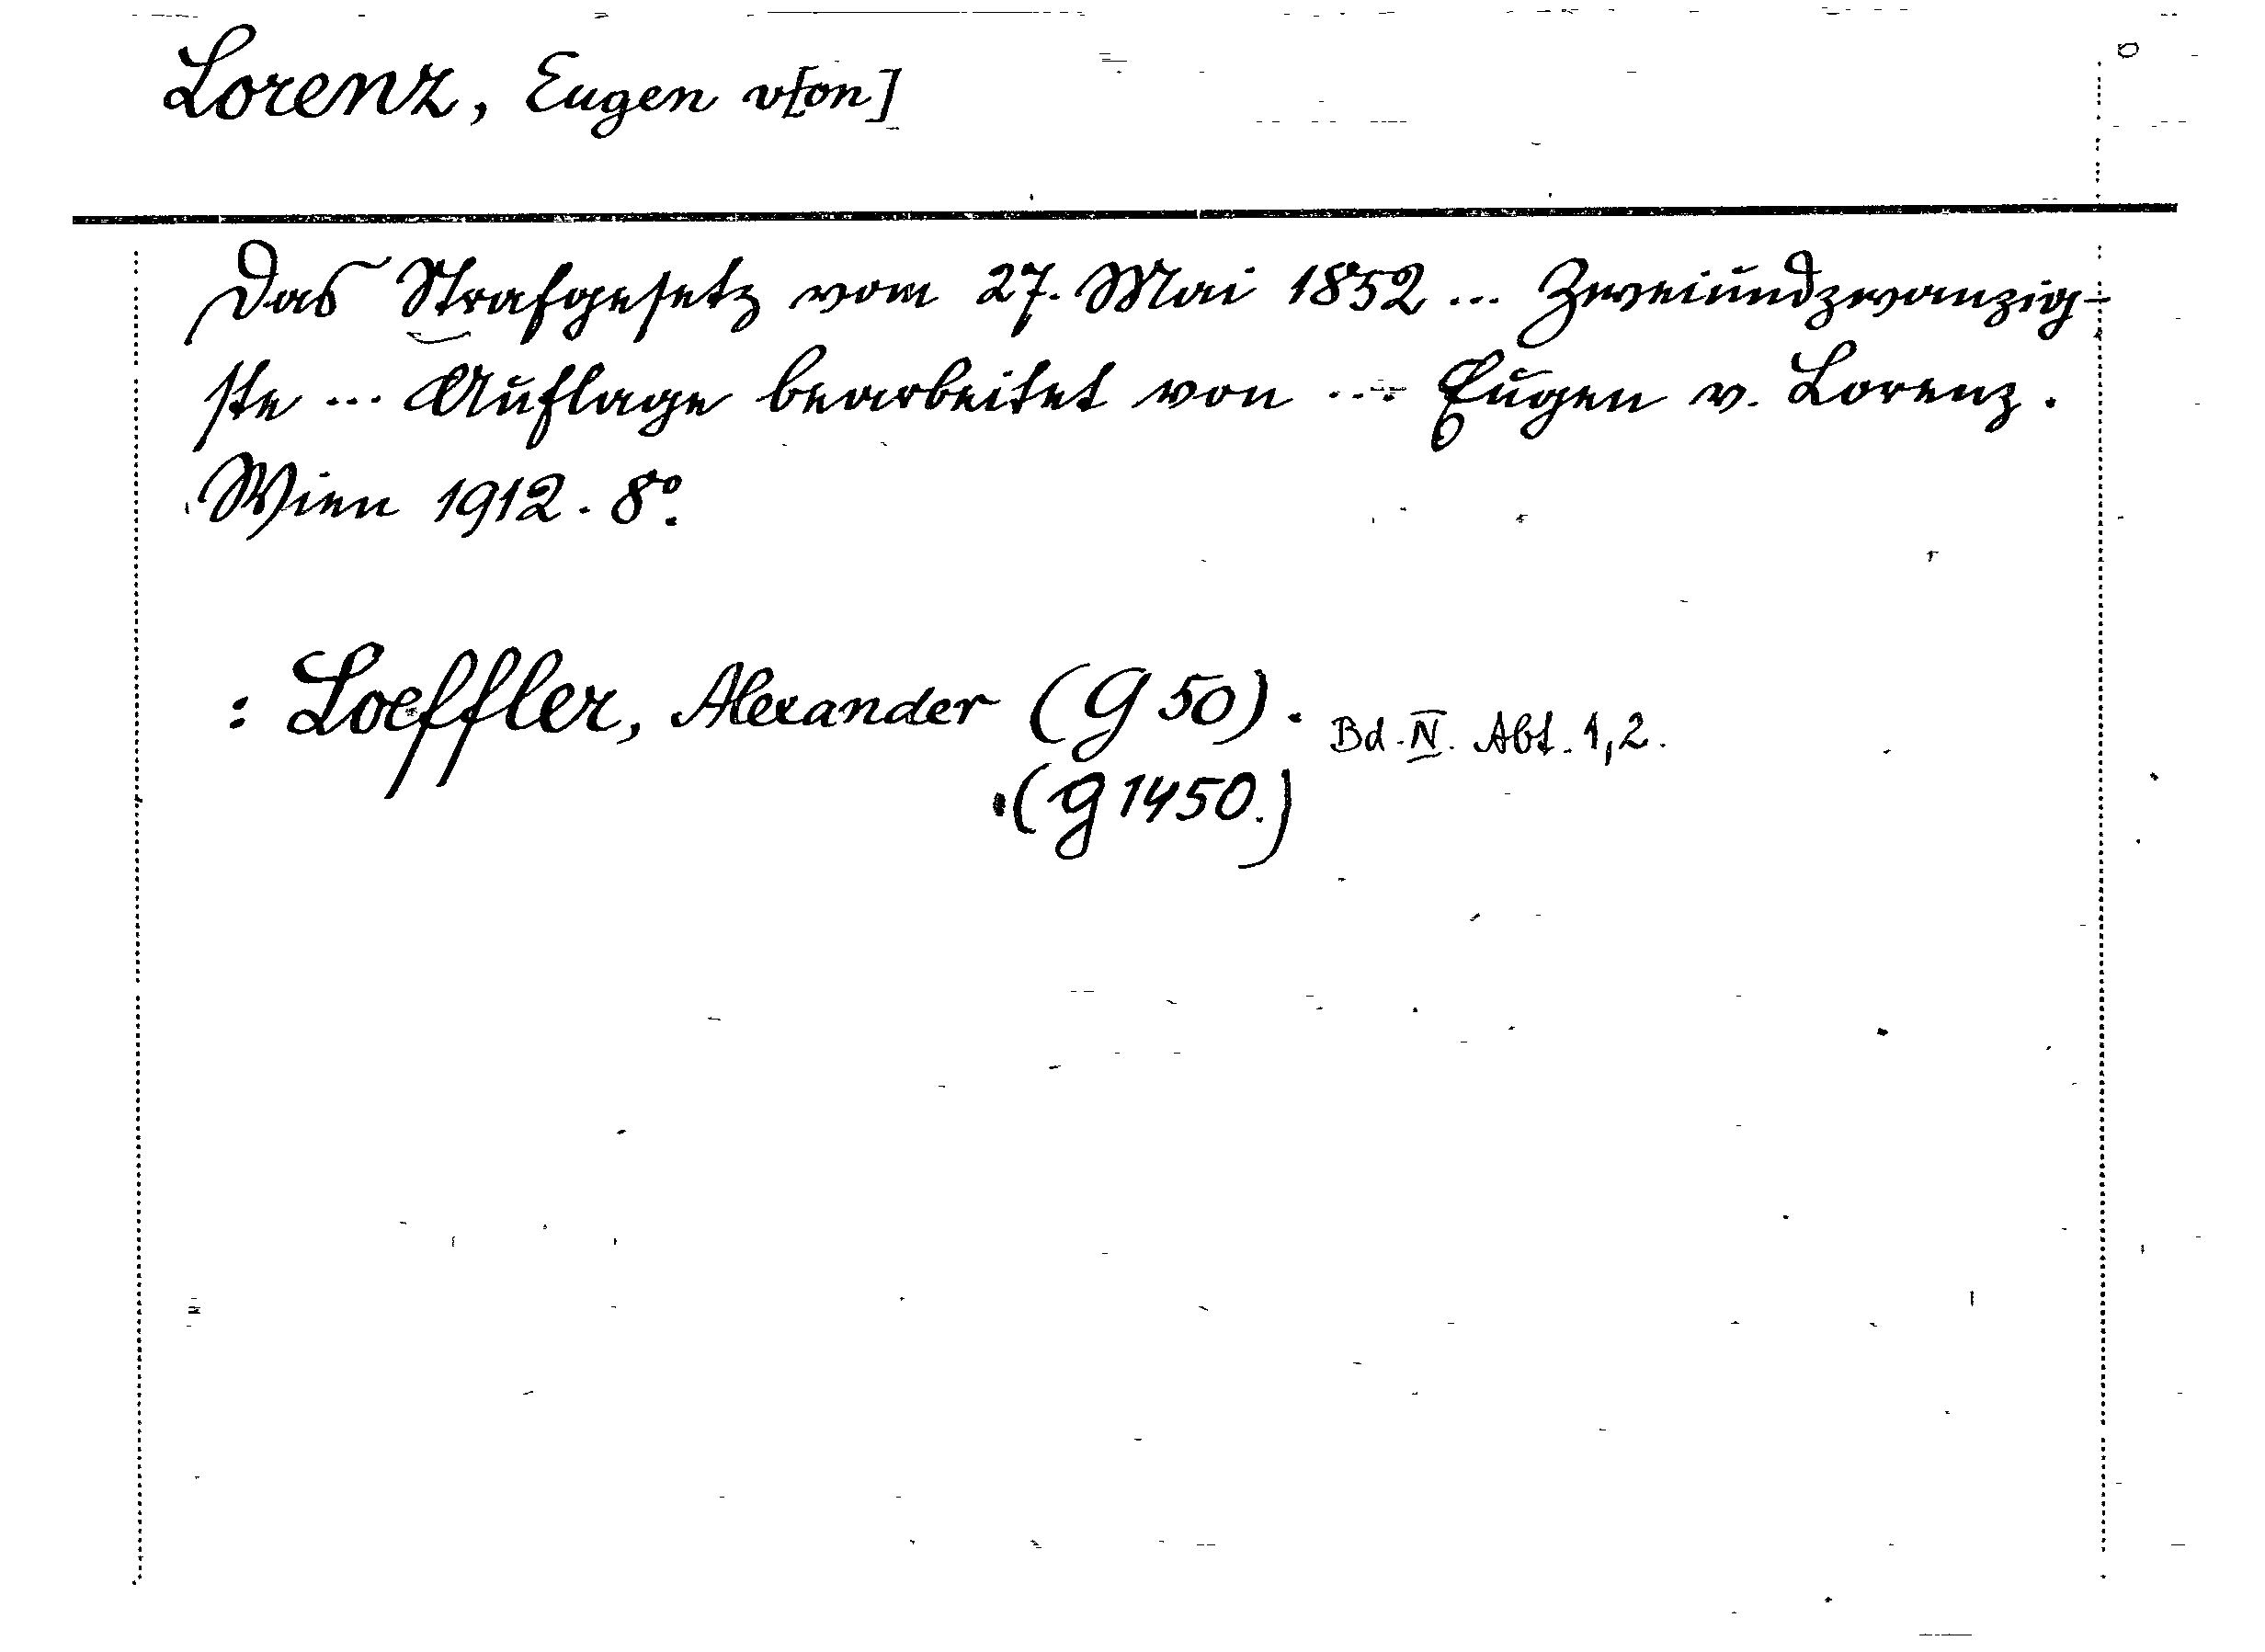 Lorenz, Eugen v[on]
Das Strafgesetz vom 27. Mai 1852 ... Zweiundzwanzig-
ste ... Auflage bearbeitet von ... Eugen v. Lorenz.
Wien 1912. 8°.
: Loeffler, Alexander (G 50). Bd. IV. Abt. 1, 2.
(G 1450.)